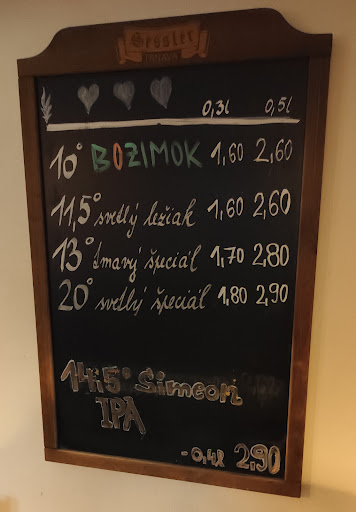 Sessler
TRNAVA
0,3l 0,5l
10° BOZIMOK 1,60 2,60
11,5° svetlý ležiak 1,60 2,60
13° tmavý špeciál 1,70 2,80
20° svetlý špeciál 1,80 2,90
14,5° Simeon
IPA
- 0,4l 2,90